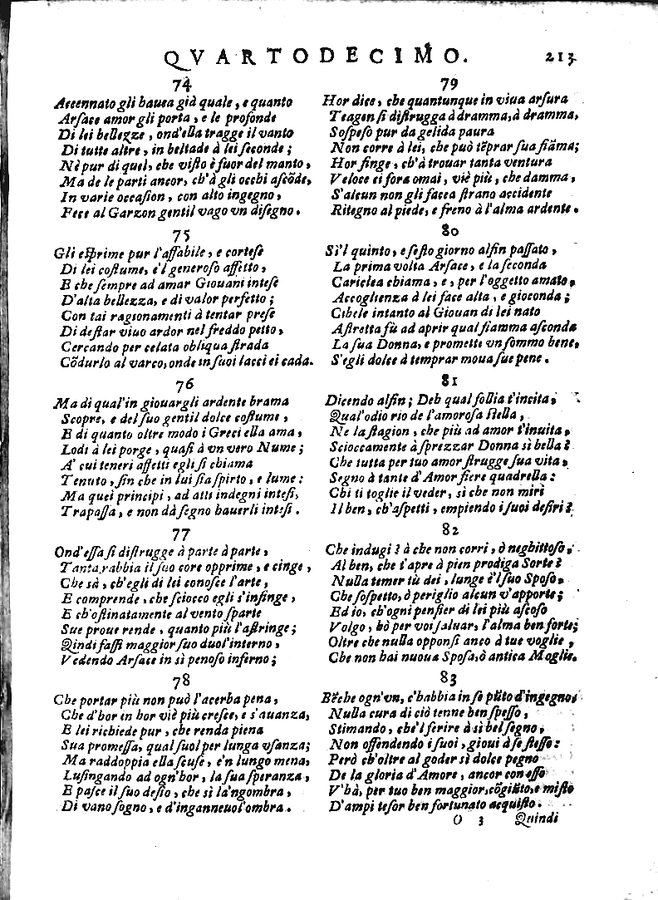 QVARTODECIMO. 213
74
Accennato gli hauea già quale, e quanto
Arsace amor gli porta, e le profonde
Di lei bellezze, ond'ella tragge il vanto
Di tutte altre, in beltade à lei seconde;
Nè pur di quel, che visto è fuor del manto,
Ma de le parti ancor, ch'à gli occhi ascōde,
In varie occasion, con alto ingegno,
Fece al Garzon gentil vago vn disegno.
75
Gli esprime pur l'affabile, e cortese
Di lei costume, e'l generoso affetto,
E che sempre ad amar Giouani intese
D'alta bellezza, e di valor perfetto;
Con tai ragionamenti à tentar prese
Di destar viuo ardor nel freddo petto,
Cercando per celata obliqua strada
Cōdurlo al varco, onde in suoi lacci ei cada.
76
Ma di qual'in giouargli ardente brama
Scopre, e del suo gentil dolce costume,
E di quanto oltre modo i Greci ella ama,
Lodi à lei porge, quasi à vn vero Nume;
A' cui teneri affetti egli si chiama
Tenuto, fin che in lui sia spirto, e lume:
Ma quei principi, ad atti indegni intesi,
Trapassa, e non dà segno hauerli intesi.
77
Ond'essa si distrugge à parte à parte,
Tanta rabbia il suo core opprime, e cinge,
Che sà, ch'egli di lei conosce l'arte,
E comprende, che sciocco egli s'infinge,
E ch'ostinatamente al vento sparte
Sue proue rende, quanto più l'astringe;
Quindi fassi maggior suo duol'interno,
Vedendo Arsace in sì penoso inferno;
78
Che portar più non può l'acerba pena,
Che d'hor in hor viè più cresce, e s'auanza,
E lei richiede pur, che renda piena
Sua promessa, qual suol per lunga vsanza;
Ma raddoppia ella scuse, e'n lungo mena,
Lusingando ad ogn'hor, la sua speranza,
E pasce il suo desio, che sì la'ngombra,
Di vano sogno, e d'inganneuol'ombra.
79
Hor dice, che quantunque in viua arsura
Teagen si distrugga à dramma, à dramma,
Sospeso pur da gelida paura
Non corre à lei, che può tēprar sua fiāma;
Hor finge, ch'à trouar tanta ventura
Veloce ei fora omai, viè più, che damma,
S'alcun non gli facea strano accidente
Ritegno al piede, e freno à l'alma ardente.
80
Sì'l quinto, e sesto giorno alfin passato,
La prima volta Arsace, e la seconda
Cariclea chiama, e, per l'oggetto amato,
Accoglienza à lei face alta, e gioconda;
Cibele intanto al Giouan di lei nato
Astretta fù ad aprir qual fiamma asconda
La sua Donna, e promette vn sommo bene,
S'egli dolce à temprar moua sue pene.
81
Dicendo alfin; Deh qual follia t'incita,
Qual'odio rio de l'amorosa stella,
Ne la stagion, che più ad amor t'inuita,
Scioccamente à sprezzar Donna sì bella?
Che tutta per tuo amor strugge sua vita,
Segno à tante d'Amor fiere quadrella:
Chi ti toglie il veder, sì che non miri
Il ben, ch'aspetti, empiendo i suoi desiri?
82
Che indugi? à che non corri, ò neghittoso,
Al ben, che t'apre à pien prodiga Sorte?
Nulla temer tù dei, lunge è'l suo Sposo,
Che sospetto, ò periglio alcun v'apporte;
Ed io, ch'ogni pensier di lei più ascoso
Volgo, hò per voi saluar, l'alma ben forte;
Oltre che nulla opponsi anco à tue voglie,
Che non hai nuoua Sposa, ò antica Moglie.
83
Bēche ogn'vn, c'habbia in se pūto d'ingegno,
Nulla cura di ciò tenne ben spesso,
Stimando, che'l ferire à sì bel segno,
Non offendendo i suoi, gioui à se stesso:
Però ch'oltre al goder sì dolce pegno
De la gloria d'Amore, ancor con esso
V'hà, per tuo ben maggior, cōgiūto, e misto
D'ampi tesor ben fortunato acquisto.
O 3 Quindi